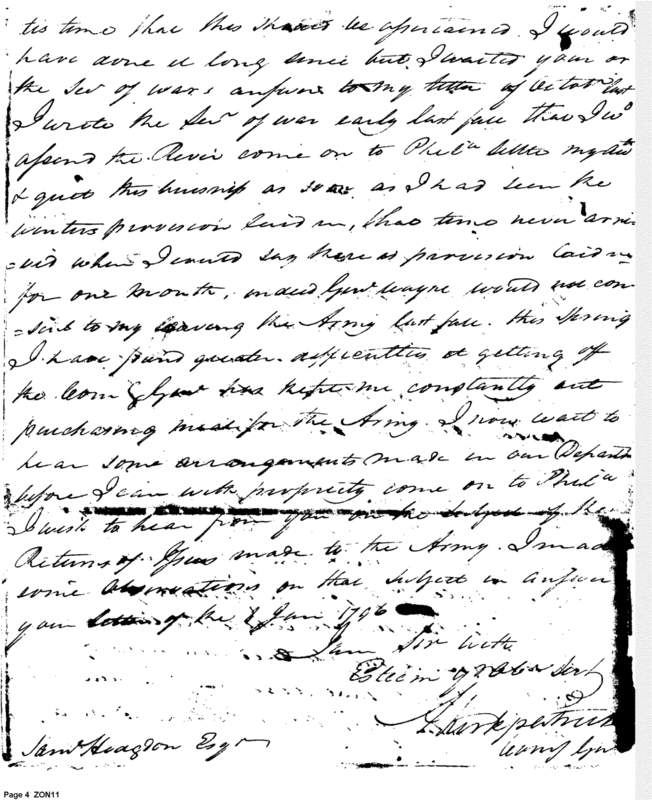 tis time that this should be assertained. I would
have done it long since but I waited your or
the Secy of wars answer to my letter of Octobr last
I wrote the Secy of war early last fall that I wd
assend the River come on to Phila settle my
& quit this business as soon as I had seen the
winters provision laid in, that time never arri
=ved when I could say there is provision laid in
for one month, indeed Genl Wayne would not con
=sent to my leaving the Army last fall. this Spring
I have found greater difficulties at getting off
the Com Genl has kept me constantly out
purchasing meat for the Army. I now wait to
hear some arrangements made in our Departt
before I can with propriety come on to Phila
I wish to hear from you on the subject of the
Returns of Issues made to the Army. I mad
some observations on that subject in answer
your letter of the Jan 1796
I am Sir with
Esteem yr Obt Sert
Kirkpatrick
Comy Genl
Saml Hoagdon Esqr
Page 4 ZON11